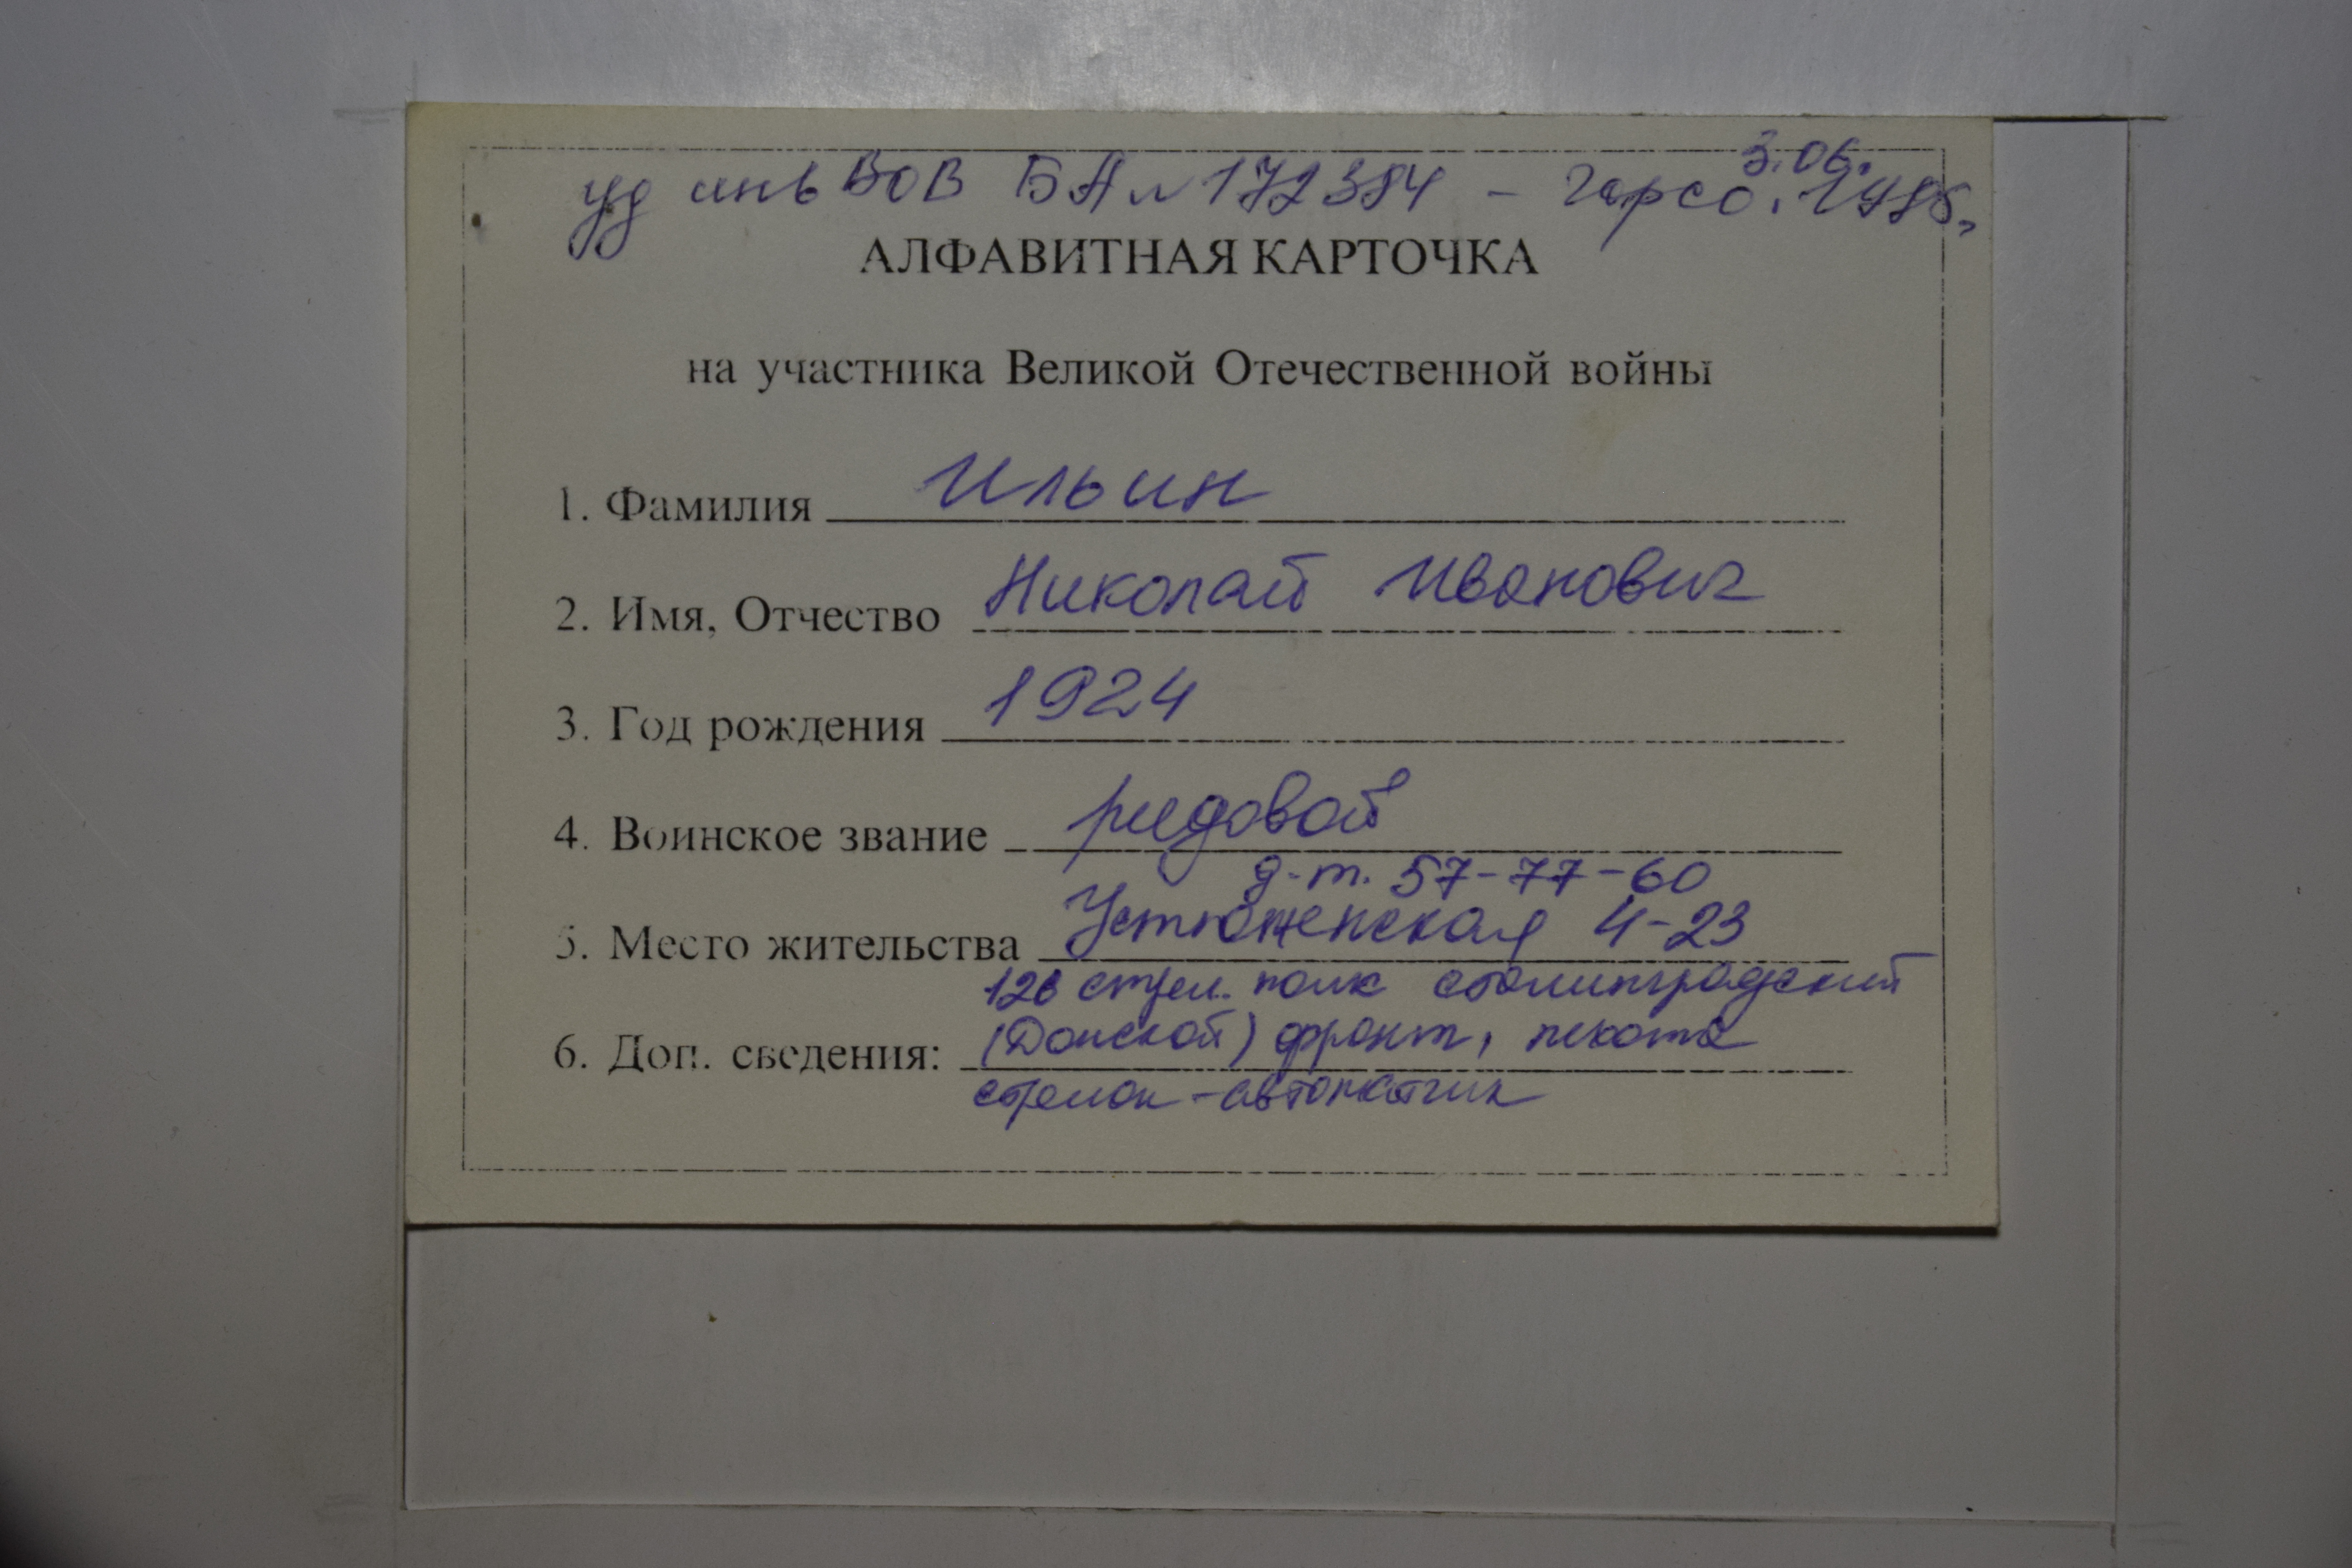 3.06.
уд инв ВОВ БА № 172384 - Горсо. 1998г.
АЛФАВИТНАЯ КАРТОЧКА
на участника Великой Отечественной войны
1. Фамилия Ильин
2. Имя, Отчество Николай Иванович
3. Год рождения 1924
4. Воинское звание рядовой
д.т. 57-77-60
5. Место жительства Устюженская 4-23
128 стрел. полк сталинградский
6. Доп. сведения: (Донской) фронт, пехота
стрелок-автоматчик